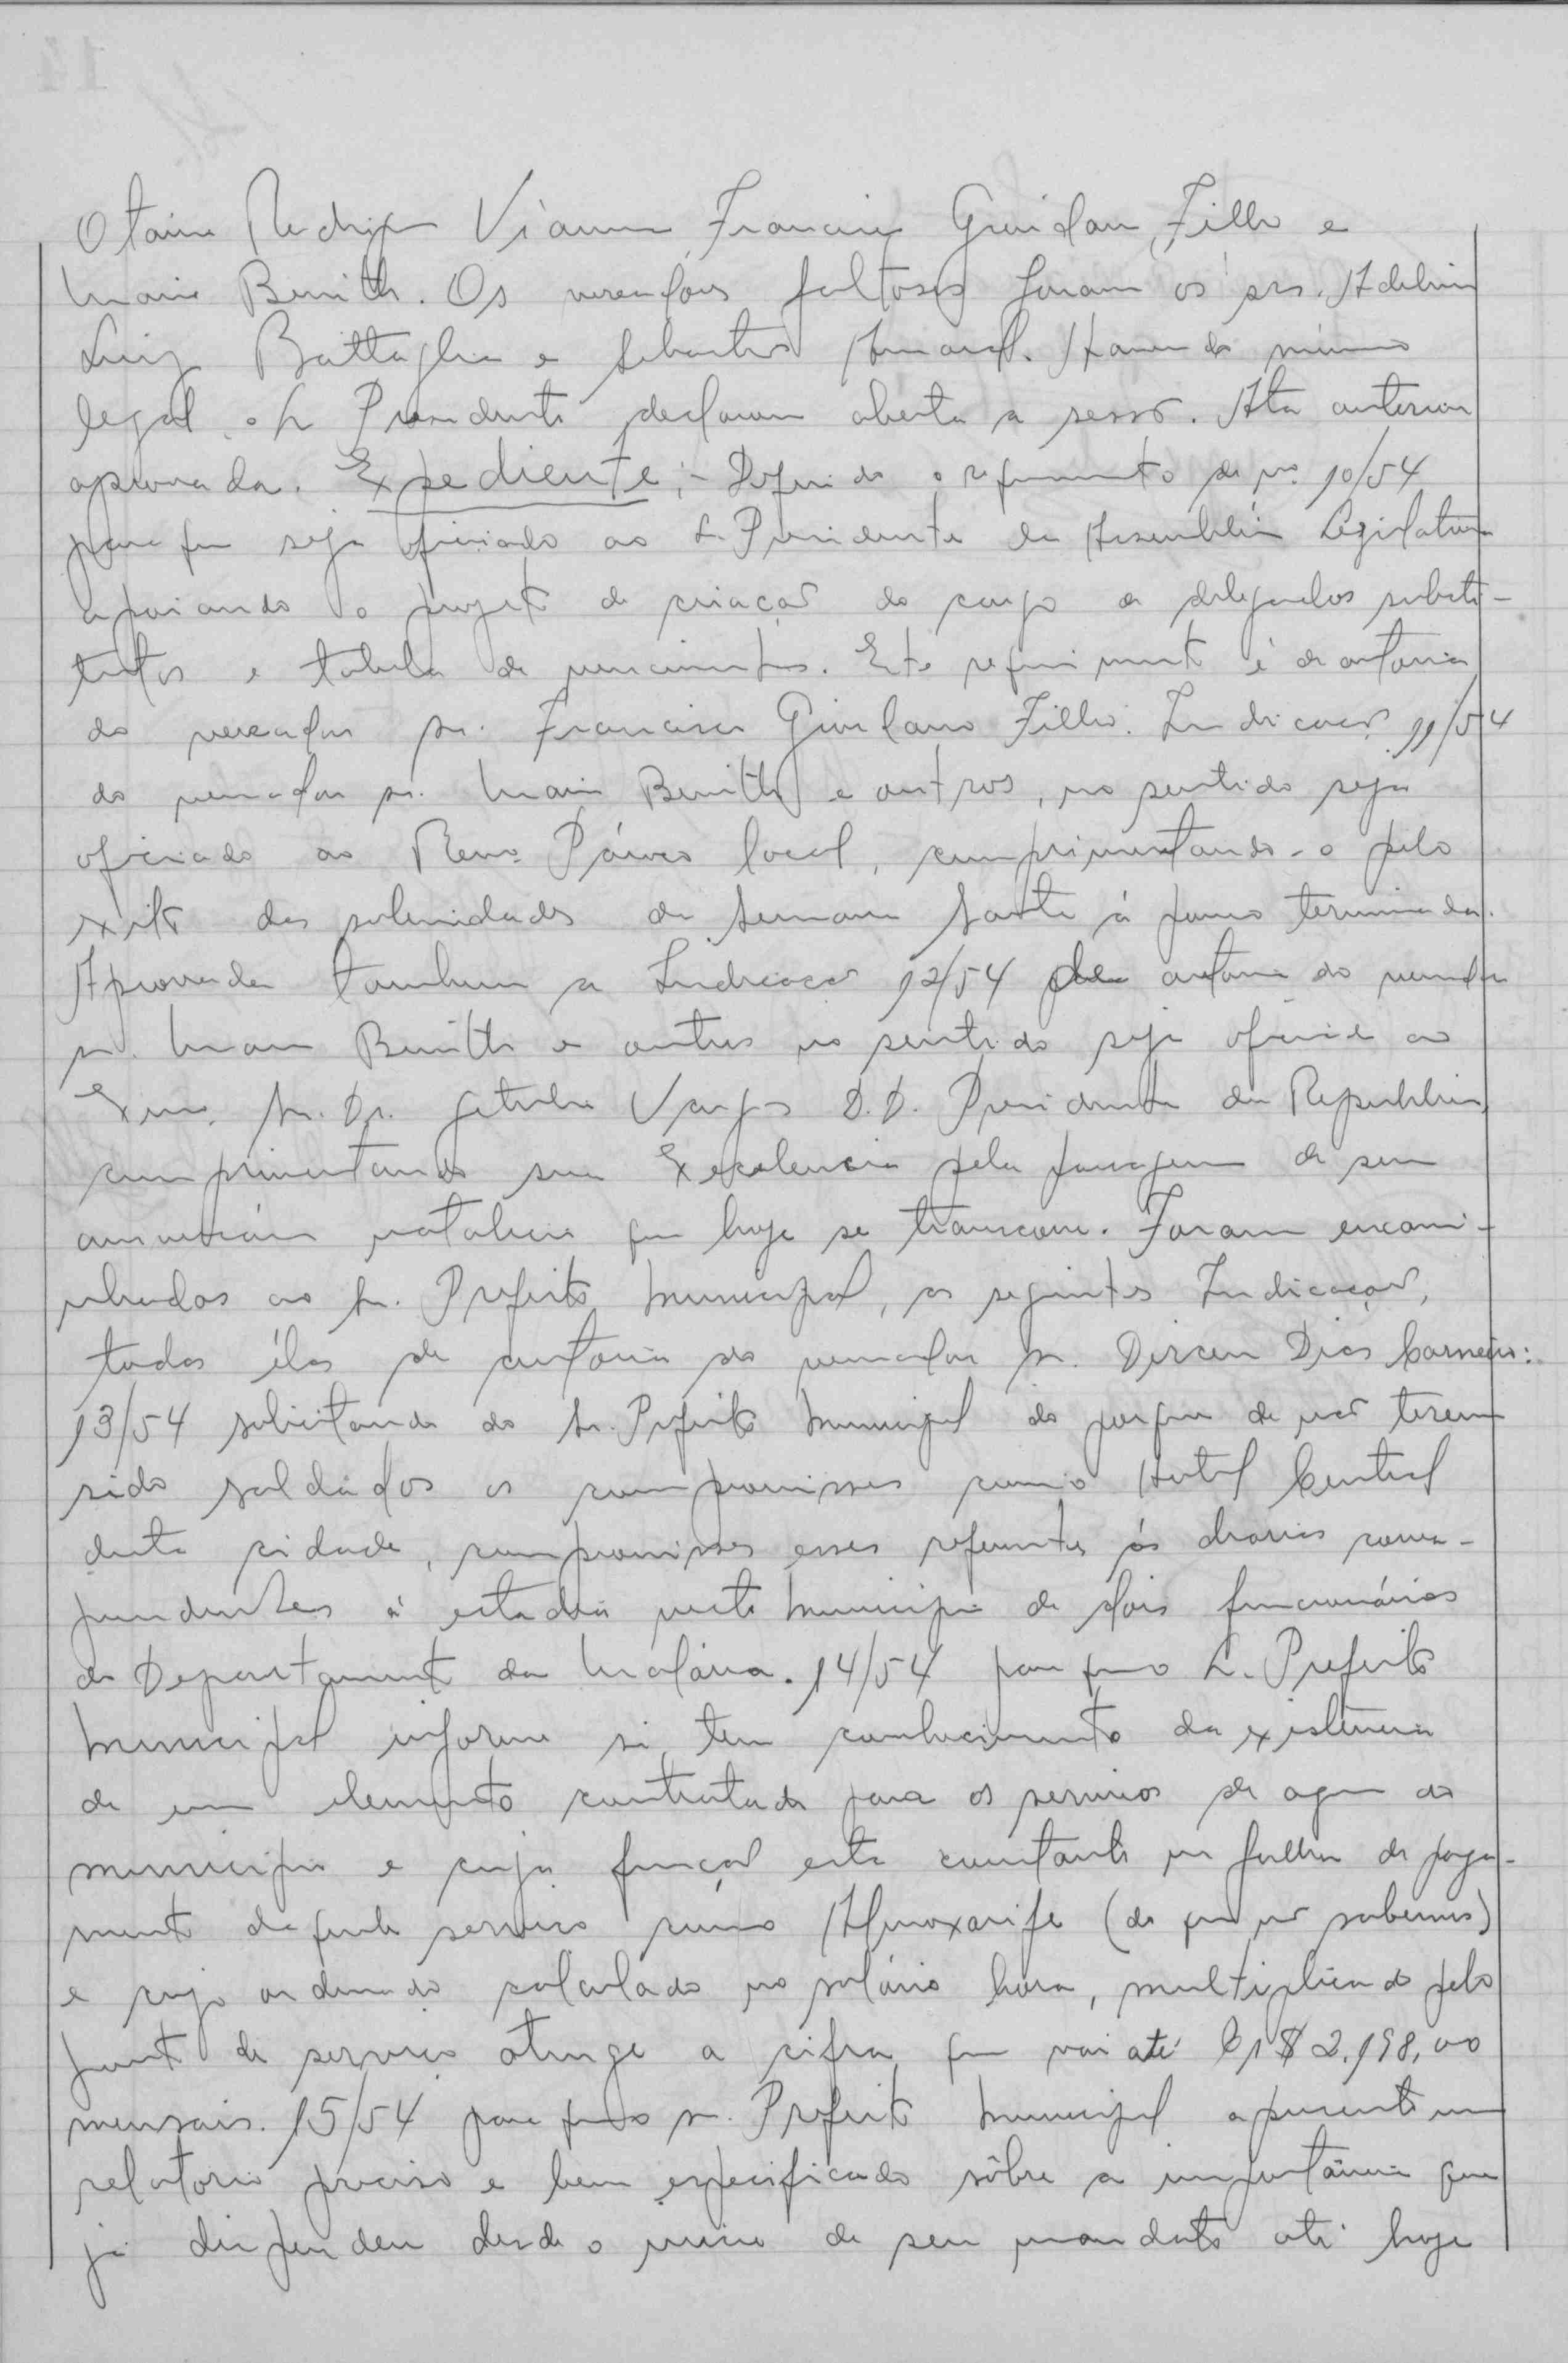 Rodrigues Vianna, Francisco Giordano Filho e
Mario Benith. Os vereadores faltosos foram os srs.
Luiz Battaglia e Sebastião Amaral. Havendo número
legal o Sr Presidente declarou aberta a sessão. Ata anterior
aprovada. Expediente:- Deferido o requerimento de nº 10/54
para que seja oficiado ao Sr. Presidente da Assembléia Legislativa
apoiando o projeto de criação do cargo de delegados substi-
tutos e tabela de vencimentos. Este requerimento é de autoria
do vereador sr. Francisco Giordano Filho. Indicação 11/54
do vereador sr. Mario Benith e outros, no sentido seja
oficiado ao Revo. Pároco local, cumprimentando-o pelo
exito das solenidades da Semana Santa á pouco terminada.
Aprovada tambem a Indicação 12/54 de autoria do vereador
sr. Mario Benith e outros no sentido seja oficiado ao
Exmo. Sr. Dr. Getulio Vargas D.D. Presidente da Republica,
cumprimentando sua Excelencia pela passagem de seu
aniversário natalicio que hoje se transcorre. Foram encami-
nhados ao Sr. Prefeito Municipal, as seguintes Indicações,
todas élas de autoria do vereador sr. Dirceu Dias Carneiro:
13/54 solicitando do Sr. Prefeito Municipal do porque de não terem
sido saldádos os compromissos com o Hotel Central
desta cidade, compromissos esses referentes ás diarias corres-
pondentes á estadia neste Municipio de dois funcionários
do Departamento da Malária. 14/54 para que o Sr. Prefeito
Municipal informe si tem conhecimento da existencia
de um elemento contratado para os serviços de agua do
municipio e cuja função esta constante na folha de paga-
mento daquele serviço como Almoxarife (do que não sabemos)
e cujo ordenado calculado no salário hora, multiplicado pelo
de serviço atinge a cifra que vai até Cr$ 2.198,00
mensais. 15/54 para que o sr. Prefeito Municipal apresente um
relatorio preciso e bem especificado sôbre a importância que
já dispendeu desde o inicio de seu mandato até hoje